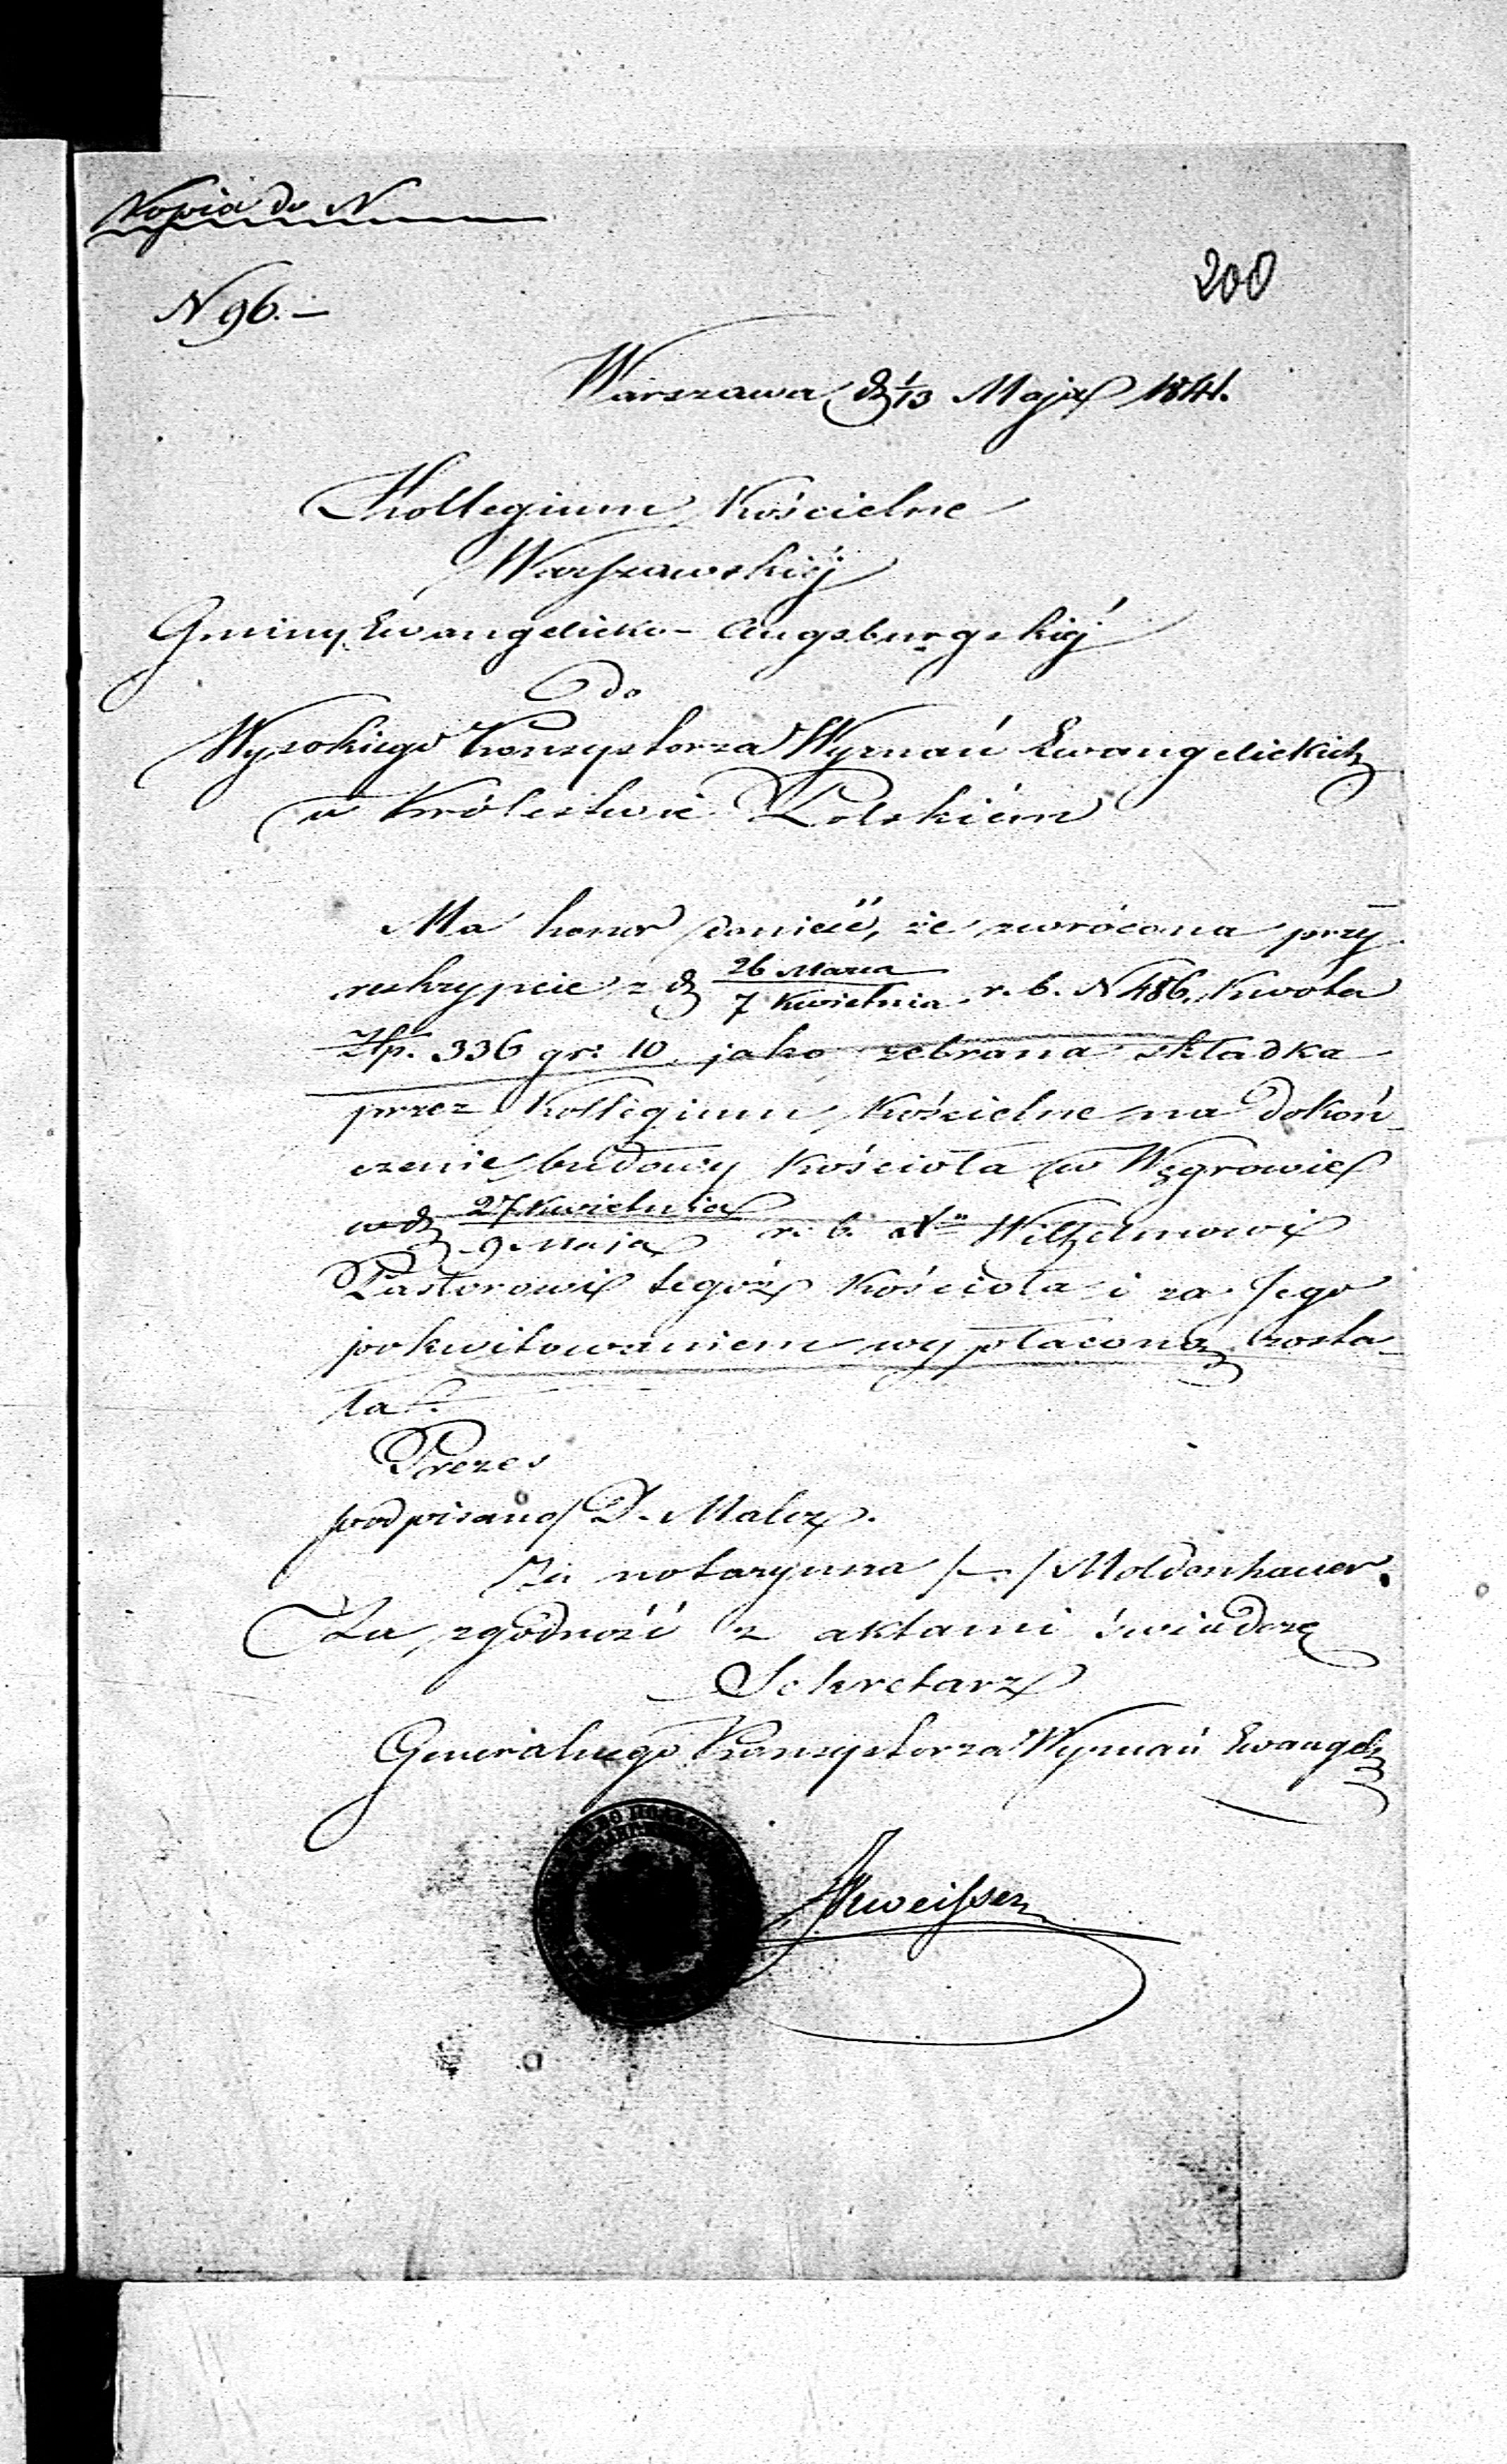 Kopia do N
200
N 96. –
Warszawa d. 1/13 Maja 1841.
Kollegium Kościelne
Warszawskiéj
Gminy Ewangelicko-Augsburgskiéj
do
Wysokiego Konsystorza Wyznań Ewangelickich
w Królestwie Polskiém
Ma honor donieść, że zwrócona przy
reskrypcie z d. 26 Marca / 7 Kwietnia r. b. N 486. Kwota
Złp. 336 gr: 10. jako zebrana składka
przez Kollegium Kościelne na dokoń-
czenie budowy Kościoła w Węgrowie
w d. 27 Kwietnia / 9 Maja r. b. Xu Wilhelmowi
Pastorowi tegoż Kościoła i za Jego
pokwitowaniem wypłaconą zosta-
ła.
Prezes
podpisano/ D. Malcz.
Za notaryusza /–/ Moldenhauer.
Za zgodność z aktami świadczę
Sekretarz
Generalnego Konsystorza Wyznań Ewangel.